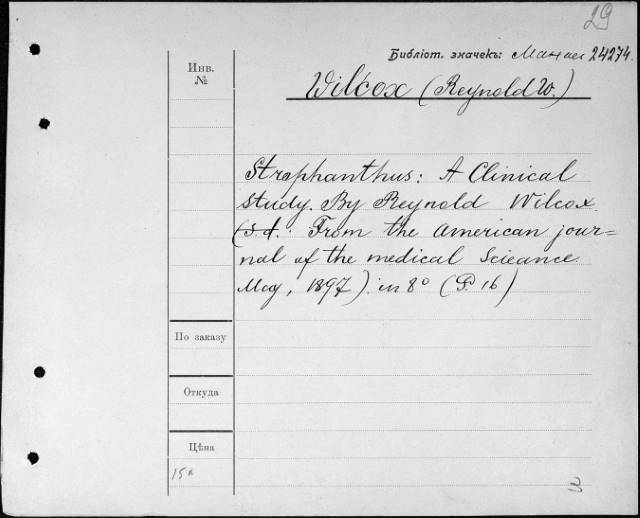 29
Библіот. значекъ: 24274.
Инв.
№
Wilcox (Reynold W.)
Strophanthus: A Clinical
study. By Reynold Wilcox.
(S. d.: From the American jour=
nal of the medical Scieance
May, 1897) in 8° (P. 16)
По заказу
Откуда
Цѣна